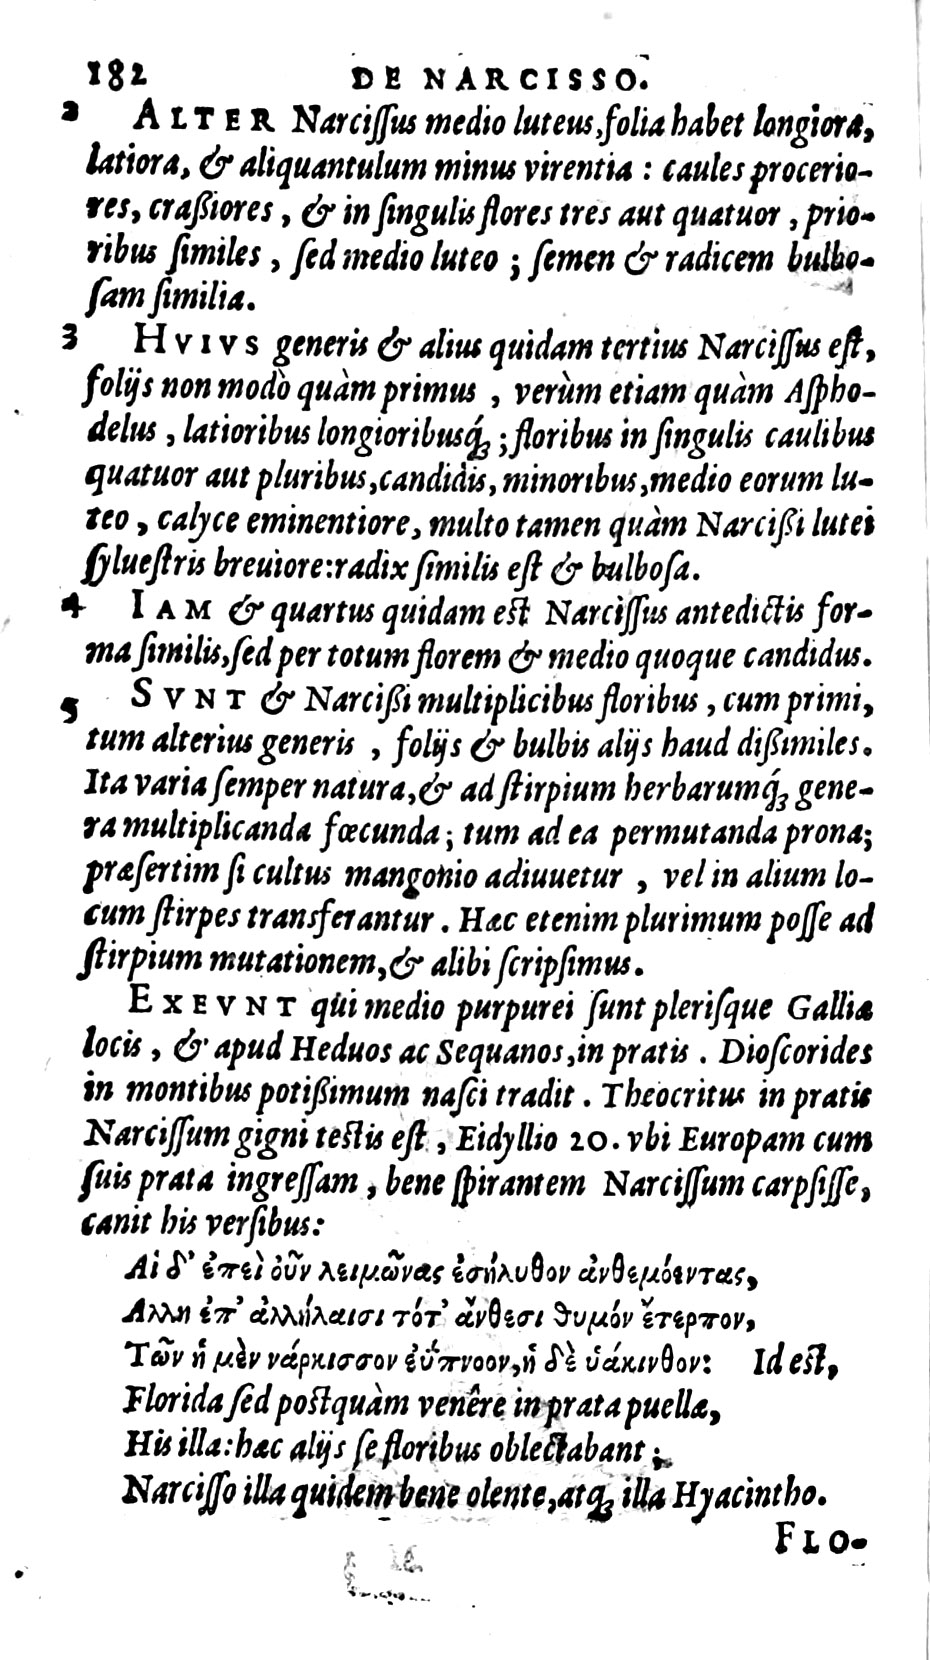 182 DE NARCISSO.
2 ALTER Narciſſus medio luteus, folia habet longiora,
latiora, & aliquantulum minus virentia : caules procerio-
res, craßiores, & in ſingulis flores tres aut quatuor, prio-
ribus ſimiles, ſed medio luteo ; ſemen & radicem bulbo-
ſam ſimilia.
3 HVIVS generis & alius quidam tertius Narciſſus eſt,
folijs non modò quàm primus, verùm etiam quàm Aſpho-
delus, latioribus longioribusq́ꝫ ; floribus in ſingulis caulibus
quatuor aut pluribus, candidis, minoribus, medio eorum lu-
teo, calyce eminentiore, multo tamen quàm Narcißi lutei
ſylueſtris breuiore: radix ſimilis eſt & bulboſa.
4 IAM & quartus quidam eſt Narciſſus antedictis for-
ma ſimilis, ſed per totum florem & medio quoque candidus.
5 SVNT & Narcißi multiplicibus floribus, cum primi,
tum alterius generis, folijs & bulbis alijs haud dißimiles.
Ita varia ſemper natura, & ad ſtirpium herbarumq́ꝫ gene-
ra multiplicanda fœcunda ; tum ad ea permutanda prona;
præſertim ſi cultus mangonio adiuuetur, vel in alium lo-
cum ſtirpes transferantur. Hæc etenim plurimum poſſe ad
ſtirpium mutationem, & alibi ſcripſimus.
EXEVNT qui medio purpurei ſunt pleriſque Galliæ
locis, & apud Heduos ac Sequanos, in pratis. Dioſcorides
in montibus potißimum naſci tradit. Theocritus in pratis
Narciſſum gigni teſtis eſt, Eidyllio 20. vbi Europam cum
ſuis prata ingreſſam, bene ſpirantem Narciſſum carpſiſſe,
canit his verſibus:
Αἱ δ' ἐπεὶ οὖν λειμῶνας ἐσήλυθον ἀνθεμόεντας,
Αλλη ἐπ' ἀλλήλαισι τότ' ἄνθεσι θυμόν ἔτερπον,
Τῶν ἡ μὲν νάρκισσον ἐΰπνοον, ἡ δὲ ὑάκινθον: Id eſt,
Florida ſed poſtquàm venêre in prata puellæ,
His illa: hæc alijs ſe floribus oblectabant ;
Narciſſo illa quidem bene olente, atqꝫ illa Hyacintho.
FLO-